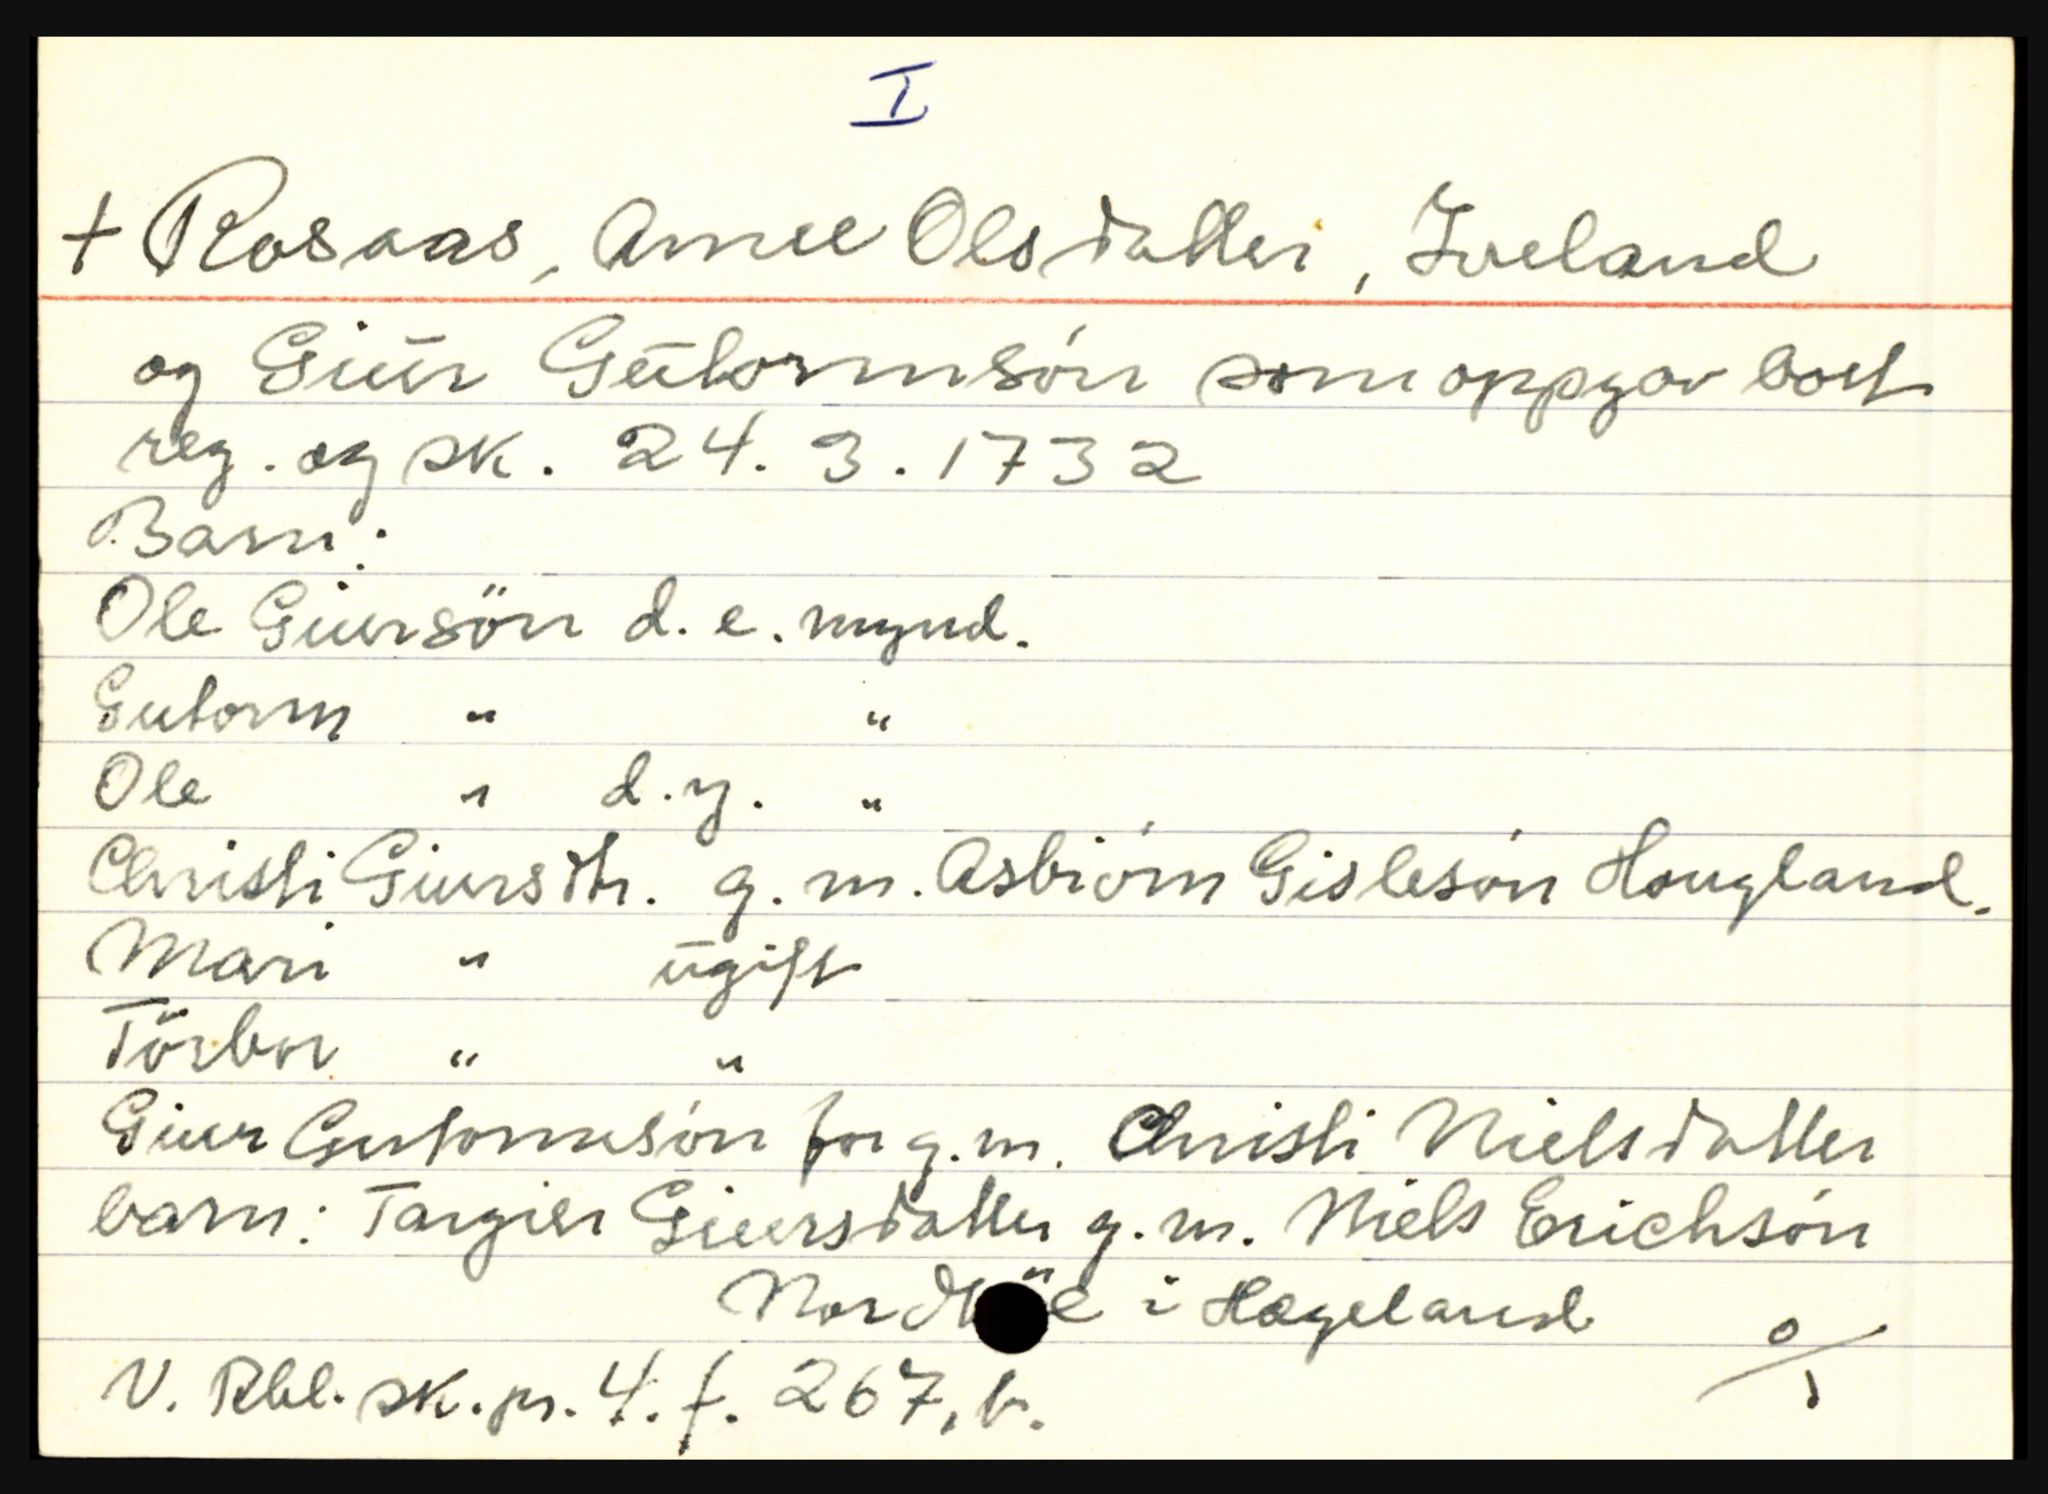 I
+ Rosaas, Anne Olsdatter, Iveland
og Giur Gutormsón som oppgav bort
reg. og sk. 24. 3. 1732
Barn:
Ole Giursön d. e. mynd.
Gutorm " "
Ole " d.y. "
Christi Giursdtr. g. m. Asbiórn Gislesón Hougland.
Mari " ugift
Törbor " "
Giur Gutormsón før g.m. Christi Nielsdatter
barn: Targier Giursdatter g.m. Niels Erichsón
i Hægeland
0/1
V. Rbl. sk. pr. 4. f. 267, b.